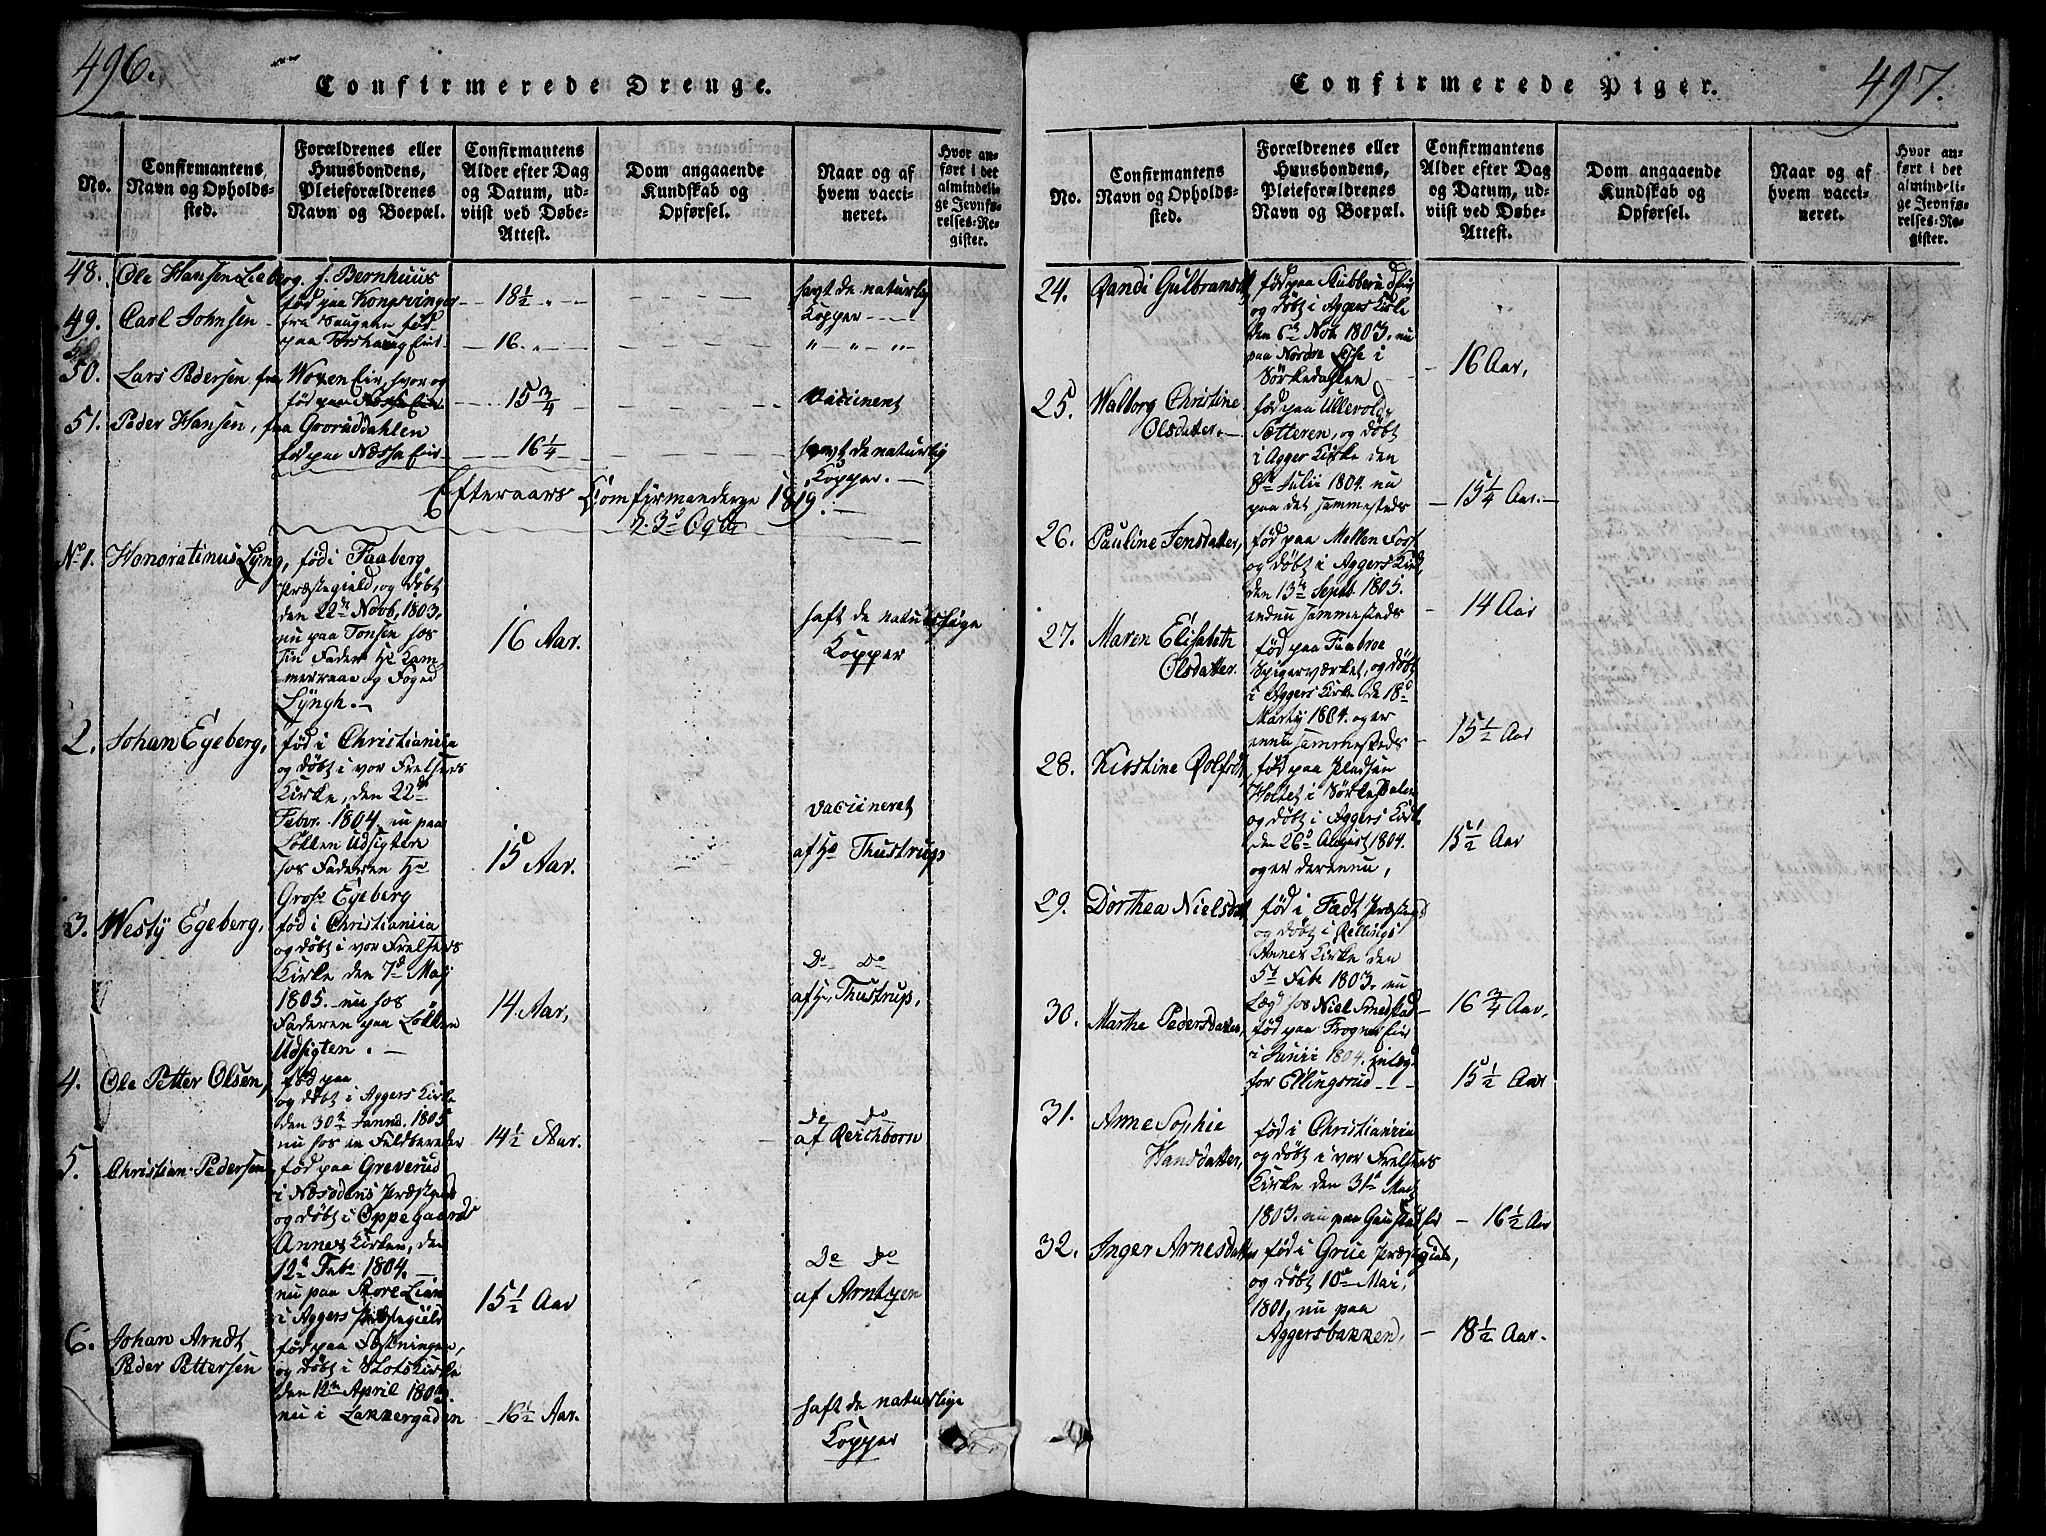 496.
Confirmerede Drenge.
No.
Confirmantens
Navn og Opholds-
sted.
Forældrenes eller
Huusbondens,
Pleieforældrenes
Navn og Boepæl.
Confirmantens
Alder efter Dag
og Datum, ud-
viist ved Døbe-
Attest.
Dom angaaende
Kundskab og
Opførsel.
Naar og af
hvem vacci-
neret.
Hvor an-
ført i det
almindeli-
ge Jevnfø-
relses-Re-
gister.
48. Ole Hansen f. Bernhuus
fød paa Kongsvinger 18½
havt de naturlig
Kopper
49. Carl Johnsen
fra Saugene fød
paa 16.
50. Lars Pedersen fra
fød paa 15¾
vaccinert
51. Peder Hansen, fra Grorüddahlen
fød paa Næssa Eie 16¼
havt de naturlig
Kopper.
Efteraars Comfirmanderne 1819.
d. 3d Octbr
No 1. Honoratinus Lyng, fød i Faaberg
Præstegield, og døbt
den 22de Novb. 1803,
nu paa Tonsen hos
sin Fader Hr Kam-
merraad og Foged
Lyngh.
16 Aar.
haft de naturlige
Kopper
2. Johan Egeberg,
fød i Christiania
og døbt i vor Frelsers
Kirke, den 22de
Febr. 1804, nu paa
Løkken Udsigten
hos Faderen Hr
Gros. Egeberg
15 Aar.
vaccineret
af Hr Thustrup
3. Westy Egeberg,
fød i Christiania
og døbt i vor Frelsers
Kirke den 7d Maj
1805. nu hos
Faderen paa Løkken
Udsigten.
14 Aar,
Do Do
af Hr. Thustrup,
4. Ole Petter Olsen,
fød paa
og døbt i Aggers Kirke
den 30te Janud. 1805
nu hos en Feldbereder
14½ Aar.
Do Do
af Reichborn
5. Christian Pedersen
fød paa Greverud
i Næsodens Præstegield
og døbt i Oppegaards
Annex Kirken, den
12te Febr 1804.
nu paa Store Lian
i Aggers Præstegield
15½ Aar
Do Do
af Arntzen
6. Johan Arndt
Peder Pettersen
fød paa Fæstningen,
og døbt i Slots Kirke
den 12te April 180
nu i Lakkergaden
16½ Aar.
haft de naturlige
Kopper
497.
Confirmerede Piger.
No.
Confirmantens
Navn og Opholds-
sted.
Forældrenes eller
Huusbondens,
Pleieforældrenes
Navn og Boepæl.
Confirmantens
Alder efter Dag
og Datum, ud-
viist ved Døbe-
Attest.
Dom angaaende
Kundskab og
Opførsel.
Naar og af
hvem vacci-
neret.
Hvor an-
ført i det
almindeli-
ge Jevnfø-
relses-Re-
gister.
24. Randi Gulbransd
fød paa Stubberud
og døbt i Aggers Kirke
den 6te Nob. 1803, nu
paa Nordre i
Sørkedahlen
16 Aar,
25. Walborg Christine
Olsdatter,
fød paa Ullevold
Sætteren, og døbt
i Agger Kirke den
8de Julii 1804 nu
paa det sammesteds
15¼ Aar.
26. Pauline Jensdatter,
fød paa Mellen Foss
og døbt i Aggers Kirk,
den 13te Septb. 1805.
endnu sammesteds
14 Aar
27. Maren Elisabeth
Olsdatter.
fød paa Faabroe
Spigerværket, og døbt
i Aggers Kirke de 18d
Martÿ 1804. og er
ennu sammesteds
15½ Aar
28. Kirstine Rolfsdt
fød paa Pladsen
Holtet i Sørkedalen
og døbt i Aggers Kirke
den 26d August 1804.
og er der ennu,
15½ Aar
29. Dorthea Nielsdat
fød i Præsteg
og døbt i Rellings
Annex Kirke den
5t Febr 1803. nu
Lægd hos Niel
16¾ Aar,
30. Marthe Pedersdatter,
fød paa Frogner Eie
i Junii 1804.
for Ellingsrud
15½ Aar
31. Anne Sophie
Hansdatter,
fød i Christiania
og døbt i vor Frelsers
Kirke den 31te Maj
1803. nu paa Gaustad
16½ Aar
32. Inger Arnesdatter
fød i Grue Præstegield,
og døbt 10de Mai,
1801, nu paa
Aggersbakken,
18½ Aar.